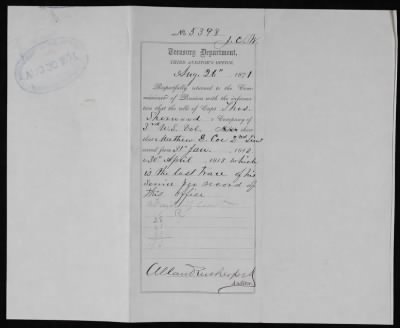 No 5398 J.C.W.
Treasury Department,
THIRD AUDITOR'S OFFICE,
Aug. 26" 1871
Respectfully returned to the Com-
missioner of Pension with the informa-
tion that the rolls of Capt. Thos.
Sherwood Company of
3rd U.S. Vol. show
that D. Coe 2nd Lieut
served from 31st Jan. 1812
to 30" April 1818. which
is the last trace of his
service per record of
this office
Allan Rutherford
Auditor